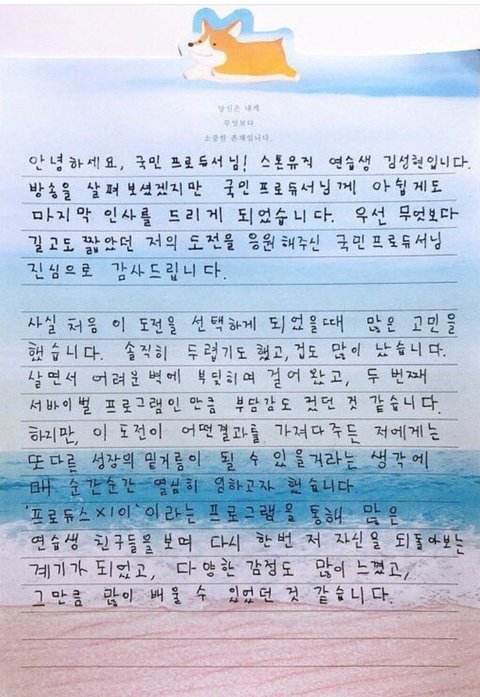 당신은 내게
무엇보다
소중한 존재입니다.
안녕하세요, 국민 프로듀서님! 스톤뮤직 연습생 김성현입니다.
방송을 살펴보셨겠지만 국민프로듀서님께 아쉽게도
마지막 인사를 드리게 되었습니다. 우선 무엇보다
길고도 짧았던 저의 도전을 응원해주신 국민프로듀서님
진심으로 감사드립니다.
사실 처음 이 도전을 선택하게 되었을때 많은 고민을
했습니다. 솔직히 두렵기도 했고, 겁도 많이 났습니다.
살면서 어려운 벽에 부딪히며 걸어 왔고, 두 번째
서바이벌 프로그램인 만큼 부담감도 컸던 것 같습니다.
하지만, 이 도전이 어떤결과를 가져다주든 저에게는
또다른 성장의 밑거름이 될 수 있을거라는 생각에
매 순간순간 열심히 임하고자 했습니다.
'프로듀스X101'이라는 프로그램을 통해 많은
연습생 친구들을 보며 다시 한번 저 자신을 되돌아보는
계기가 되었고, 다양한 감정도 많이 느꼈고,
그만큼 많이 배울 수 있었던 것 같습니다.